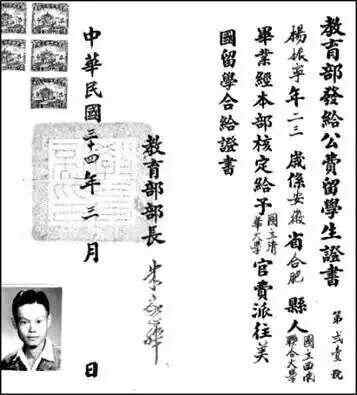 教育部發給公費留學生證書 第弍壹號
楊振寧年二三歲係安徽省合肥縣人國立西南聯合大學
畢業經本部核定給予國立清華大學官費派往美
國留學合給證書
教育部部長 朱家驊
中華民國三十四年三月 日